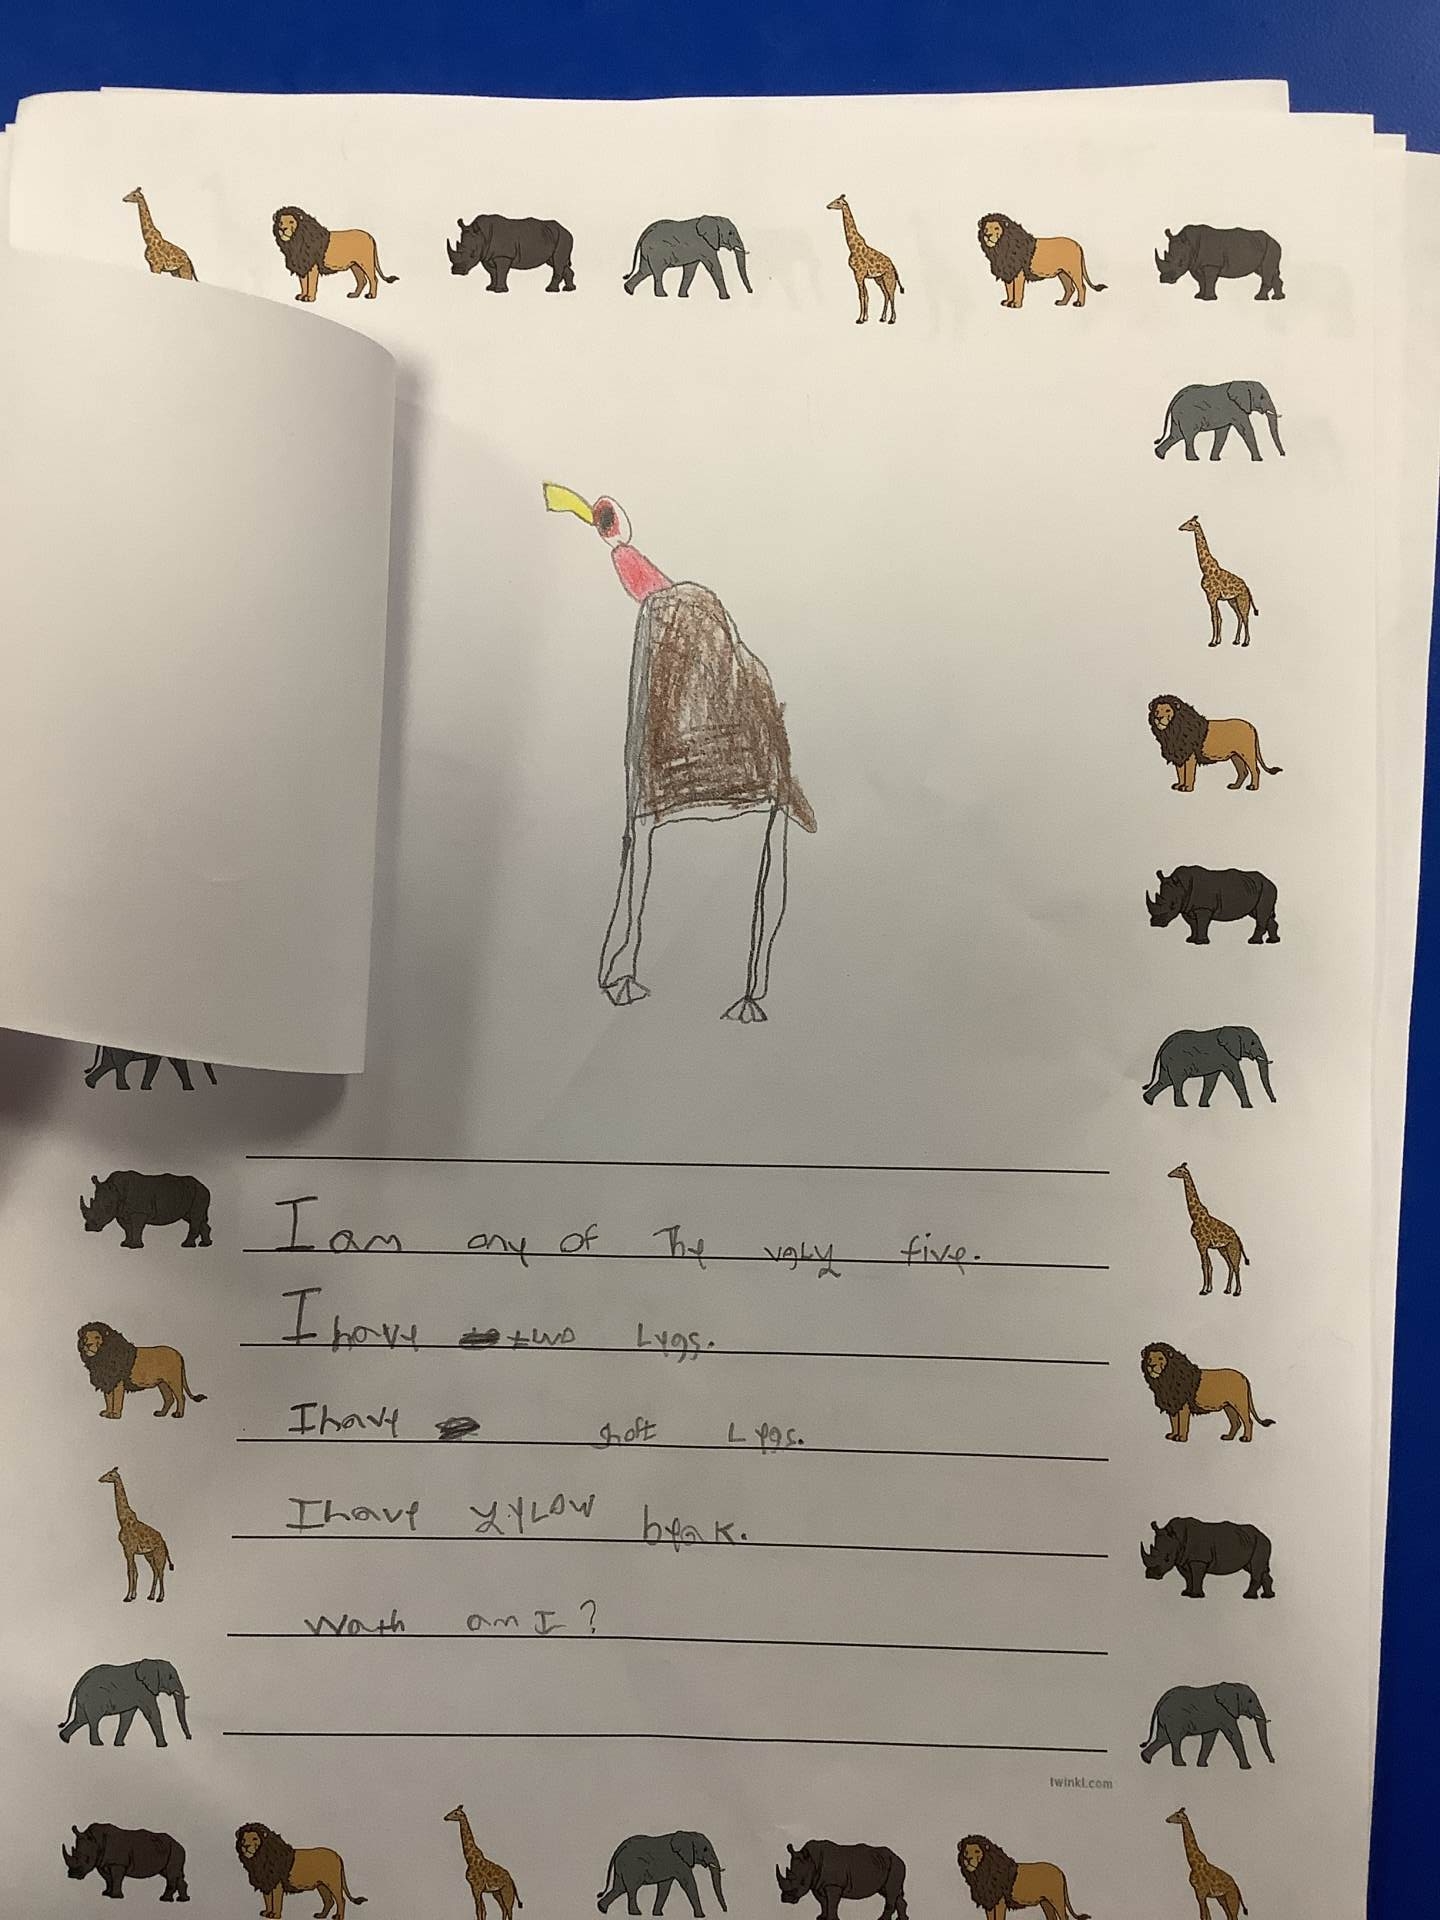 I am one of The ugly five.
I have two Legs.
I have shoft Legs.
I have yeLOW beak.
wath am I?
twinkl.com